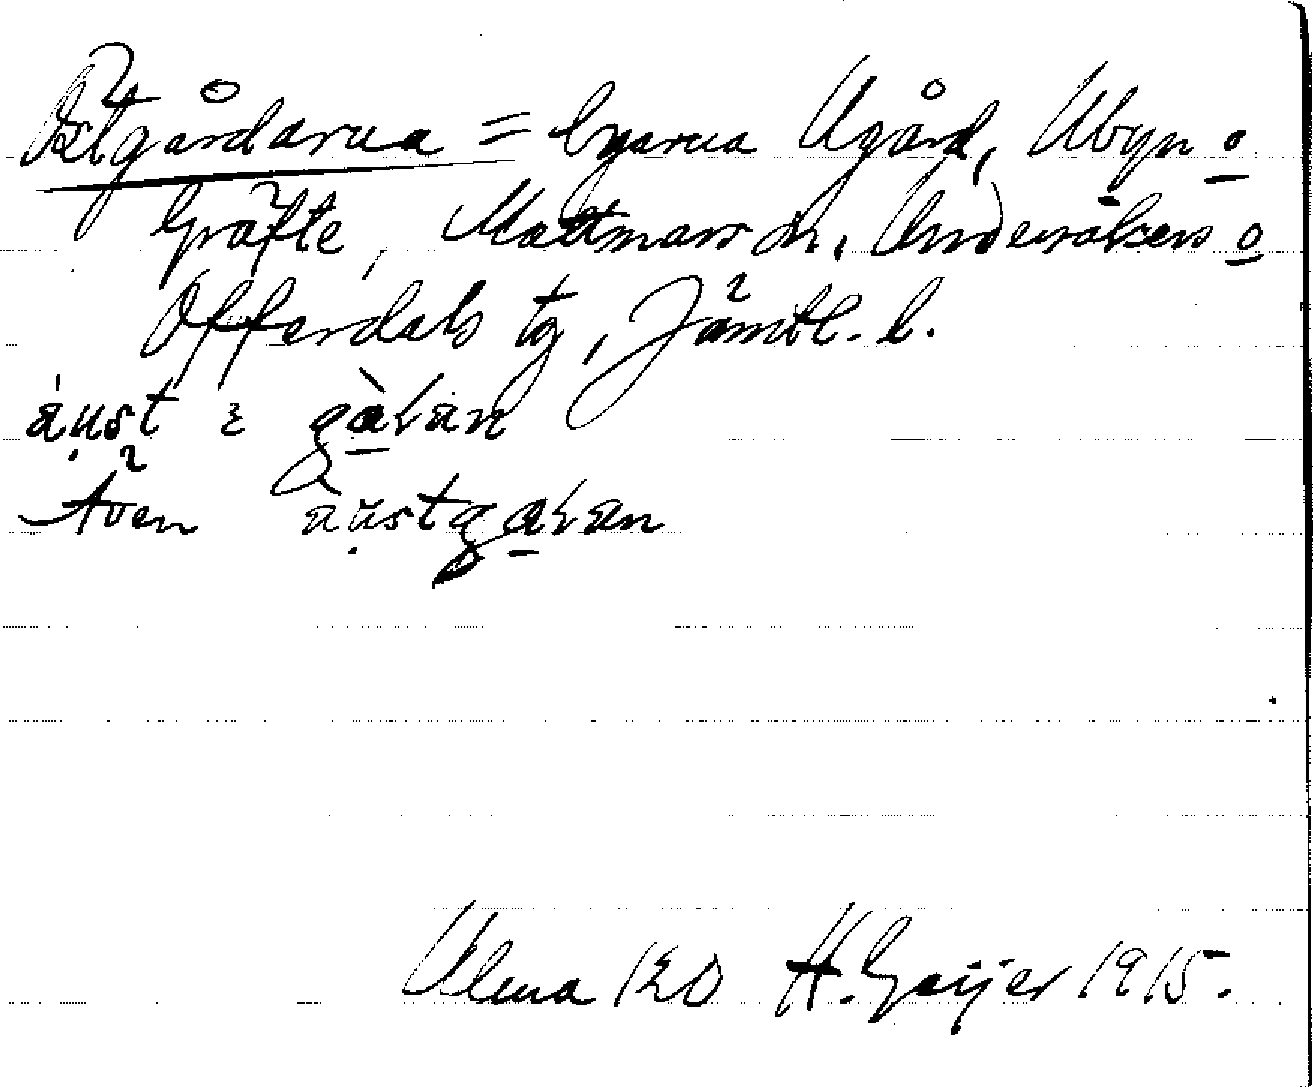 Östgårdarna = byarna Ugård, Ubyn o
Gräfte, Mattmars sn. Undersåkers o
Offerdals tg, Jämtl. l.
Även
Ulma 120 H. Geijer 1915.